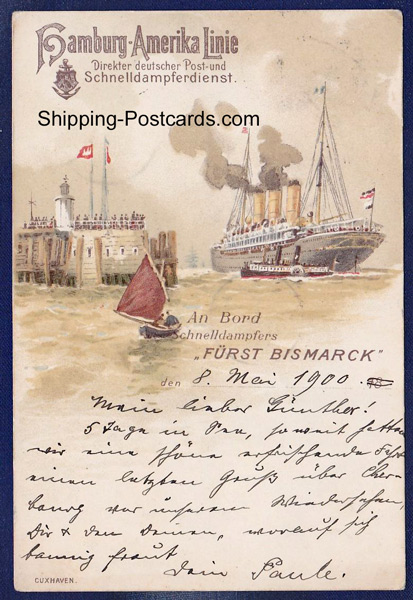 Hamburg-Amerika Linie
Direkter deutscher Post-und
Schnelldampferdienst.
Shipping-Postcards.com
An Bord
Schnelldampfers
„FÜRST BISMARCK"
den 8. Mai 1900.
Mein lieber Günther!
5 Tage in See, soweit hatten
wir eine schöne erfrischende Fahrt
einen letzten Gruß über Cher-
bourg vor unserem Wiedersehen,
Dir & den Deinen, worauf sich
freut
Dein Paule.
CUXHAVEN.